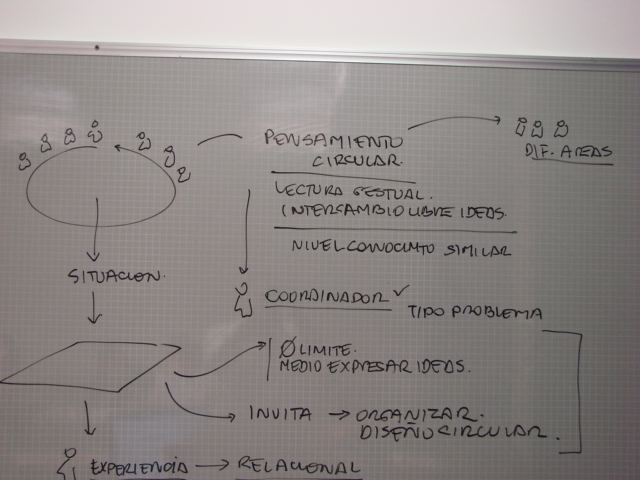 PENSAMIENTO
CIRCULAR.
DIF. AREAS
LECTURA GESTUAL.
INTERCAMBIO LIBRE IDEAS.
NIVEL CONOCIMTO SIMILAR
SITUACION.
COORDINADOR ✓
TIPO PROBLEMA
Ø LIMITE.
MEDIO EXPRESAR IDEAS.
INVITA → ORGANIZAR.
DISEÑO CIRCULAR.
EXPERIENCIA → RELACIONAL